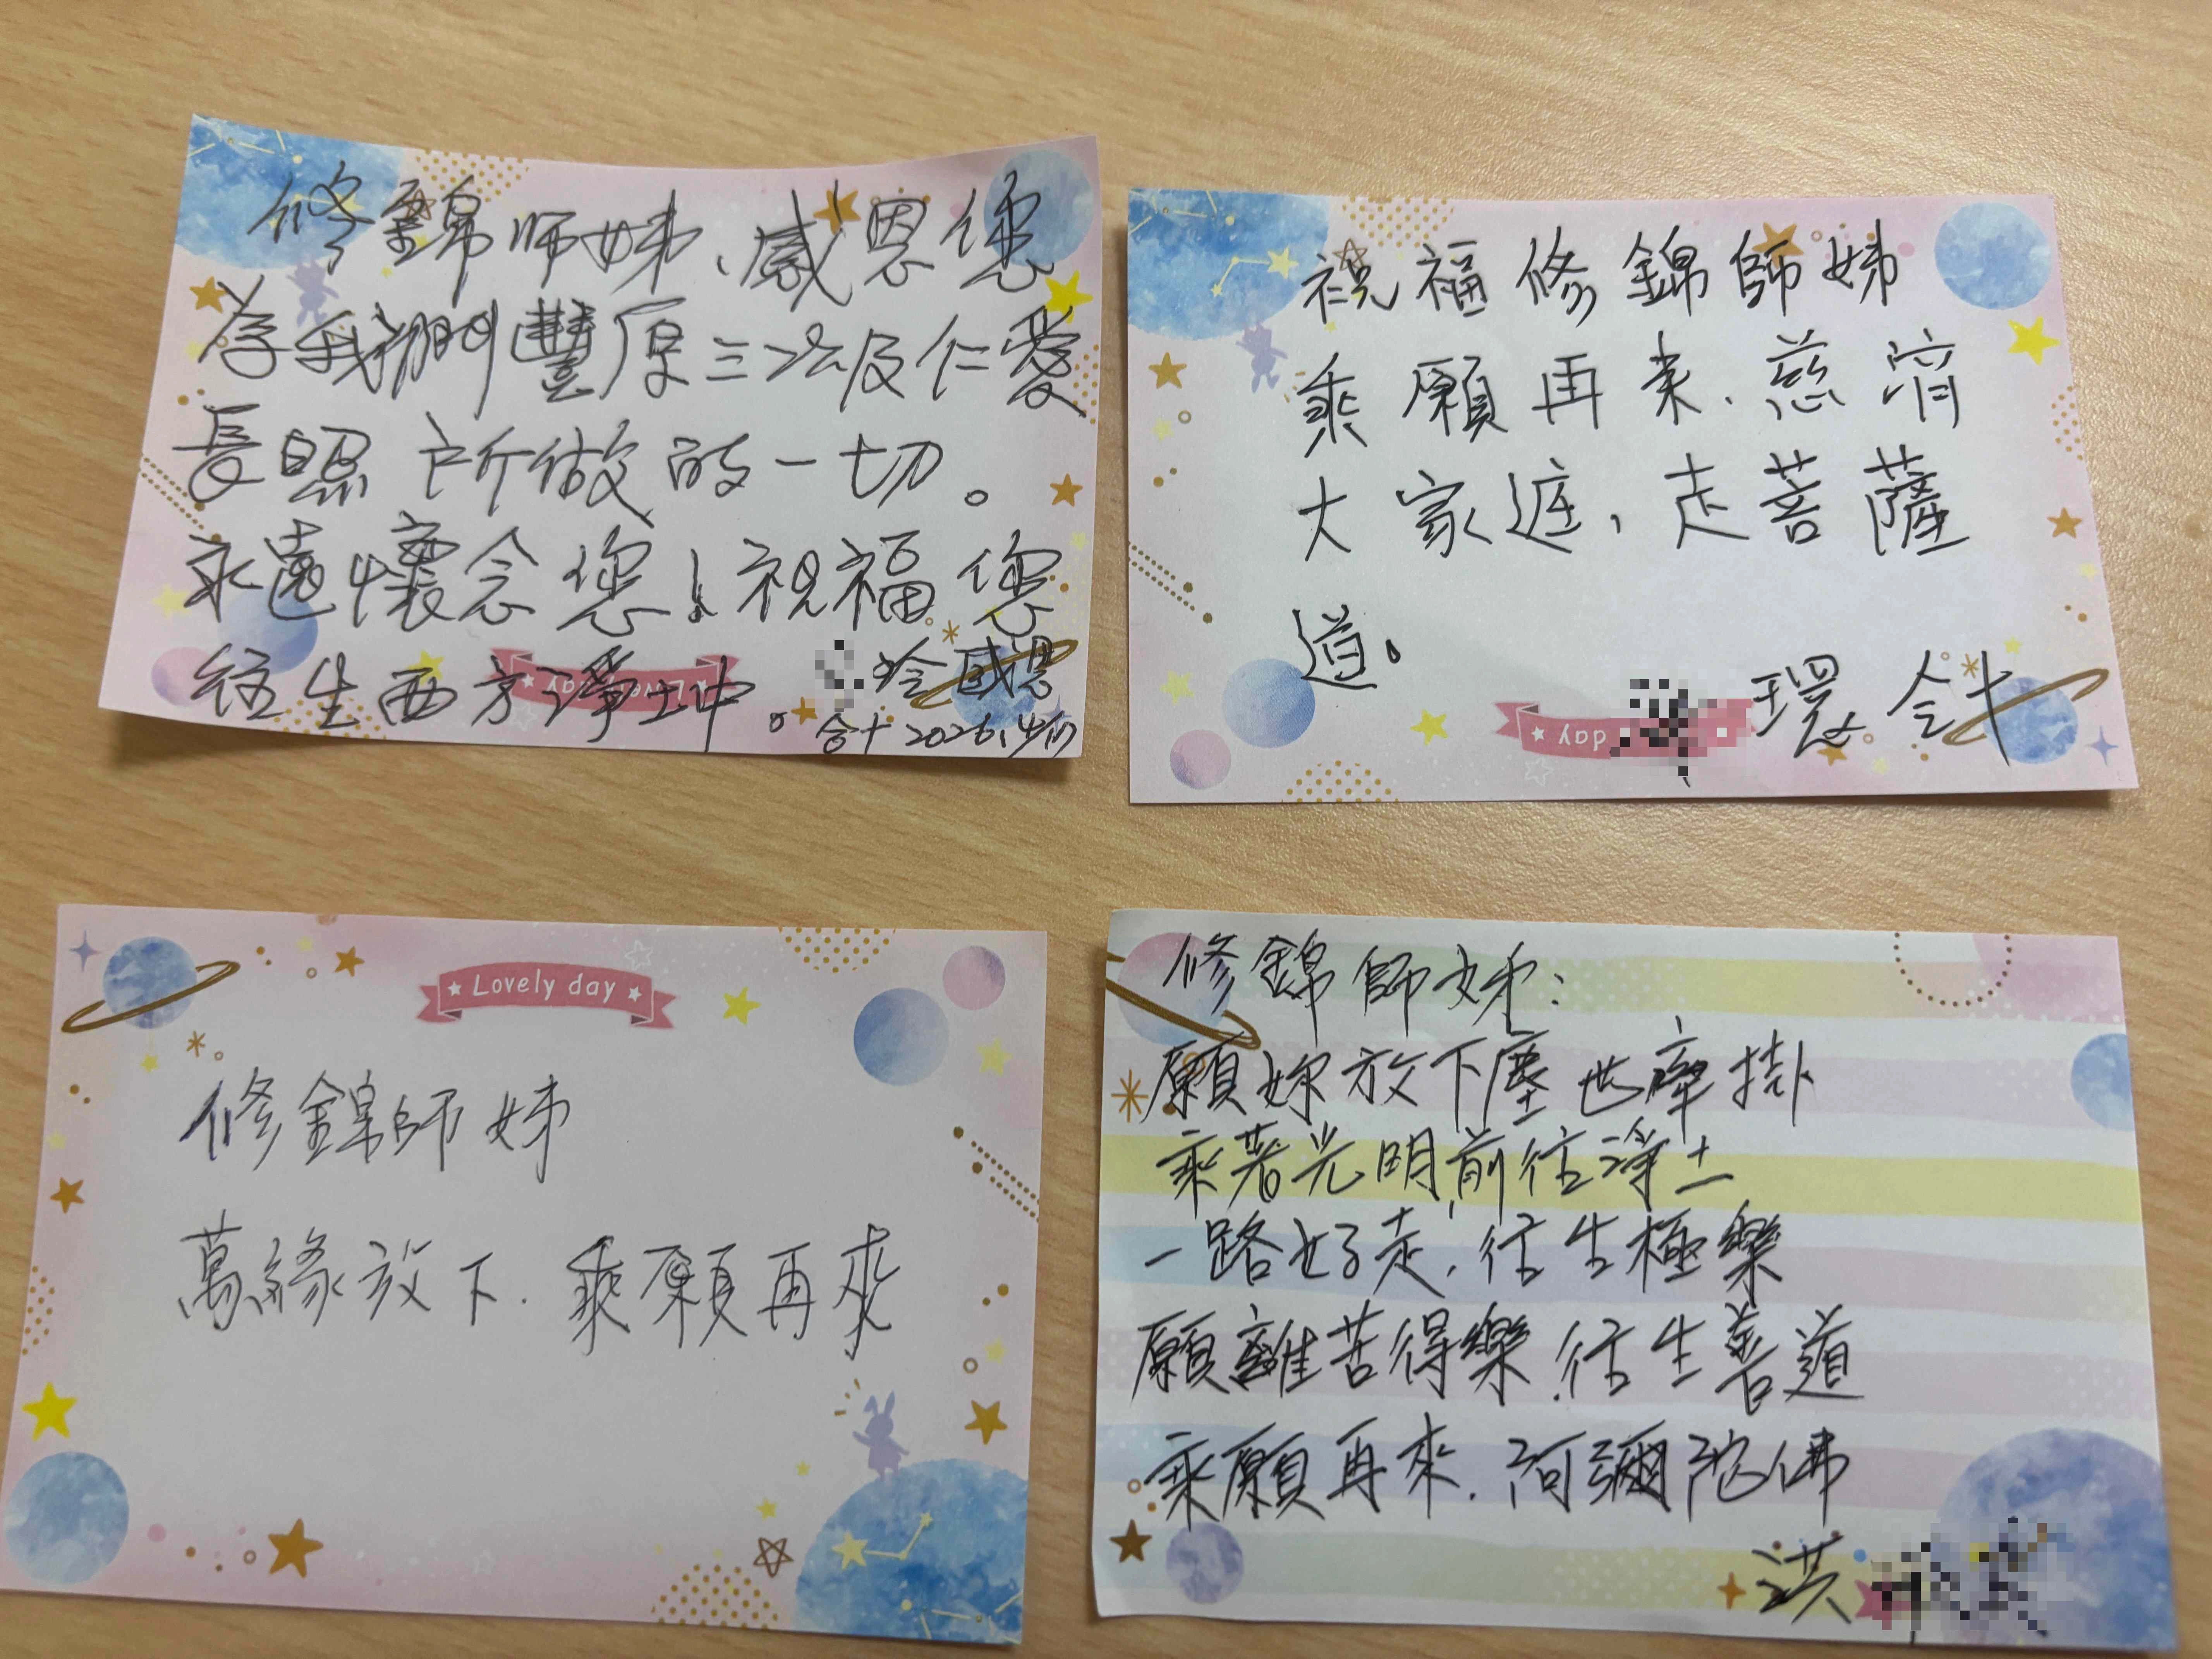 修錦师姊、感恩您
為我們豐原三次及仁愛
長照 所做的一切。
永遠懷念您！祝福您
往生西方淨土中。
玲 感恩
合十 2026.4/17
祝福修錦師姊
乘願再來.慈濟
大家庭，走菩薩
道。
環 合十
day
Lovely day
修錦師姊
萬緣放下.乘願再來
修錦師姊：
願妳放下塵世牽掛
乘著光明前往淨土
一路好走，往生極樂
願離苦得樂.往生善道
乘願再來.阿彌陀佛
洪